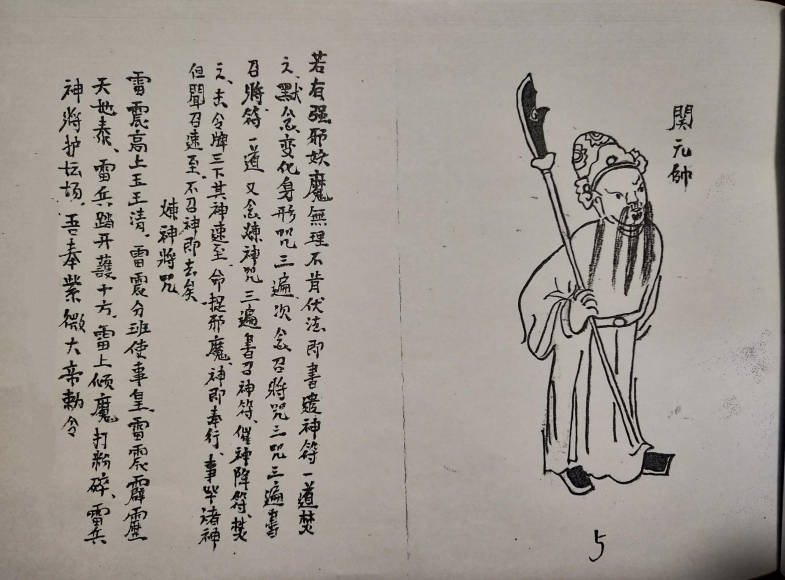 關元帥
若有强邪妖魔無理不肯伏法即書遣神符一道焚
之、默念变化身形咒三遍、次念召將咒三咒三遍書
召將符一道又念煉神咒三遍書召神符、催神降符、焚
之、击令牌三下其神速至、命捉邪魔、神即奉行、事毕诸神
但聞召速至、不召神即去矣
煉神將咒
雷震高上玉王清、雷震分班使事皇、雷震霹靂
天地泰、雷兵踏开護十方、雷上倾魔打粉碎、雷兵
神將护坛场、吾奉紫微大帝勅令
5